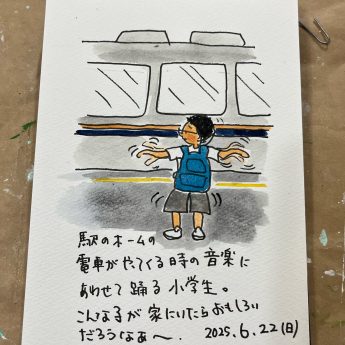 駅のホームの
電車がやってくる時の音楽に
あわせて踊る小学生。
こんな子が家にいたらおもしろい
だろうなぁ〜。 2025.6.22(日)